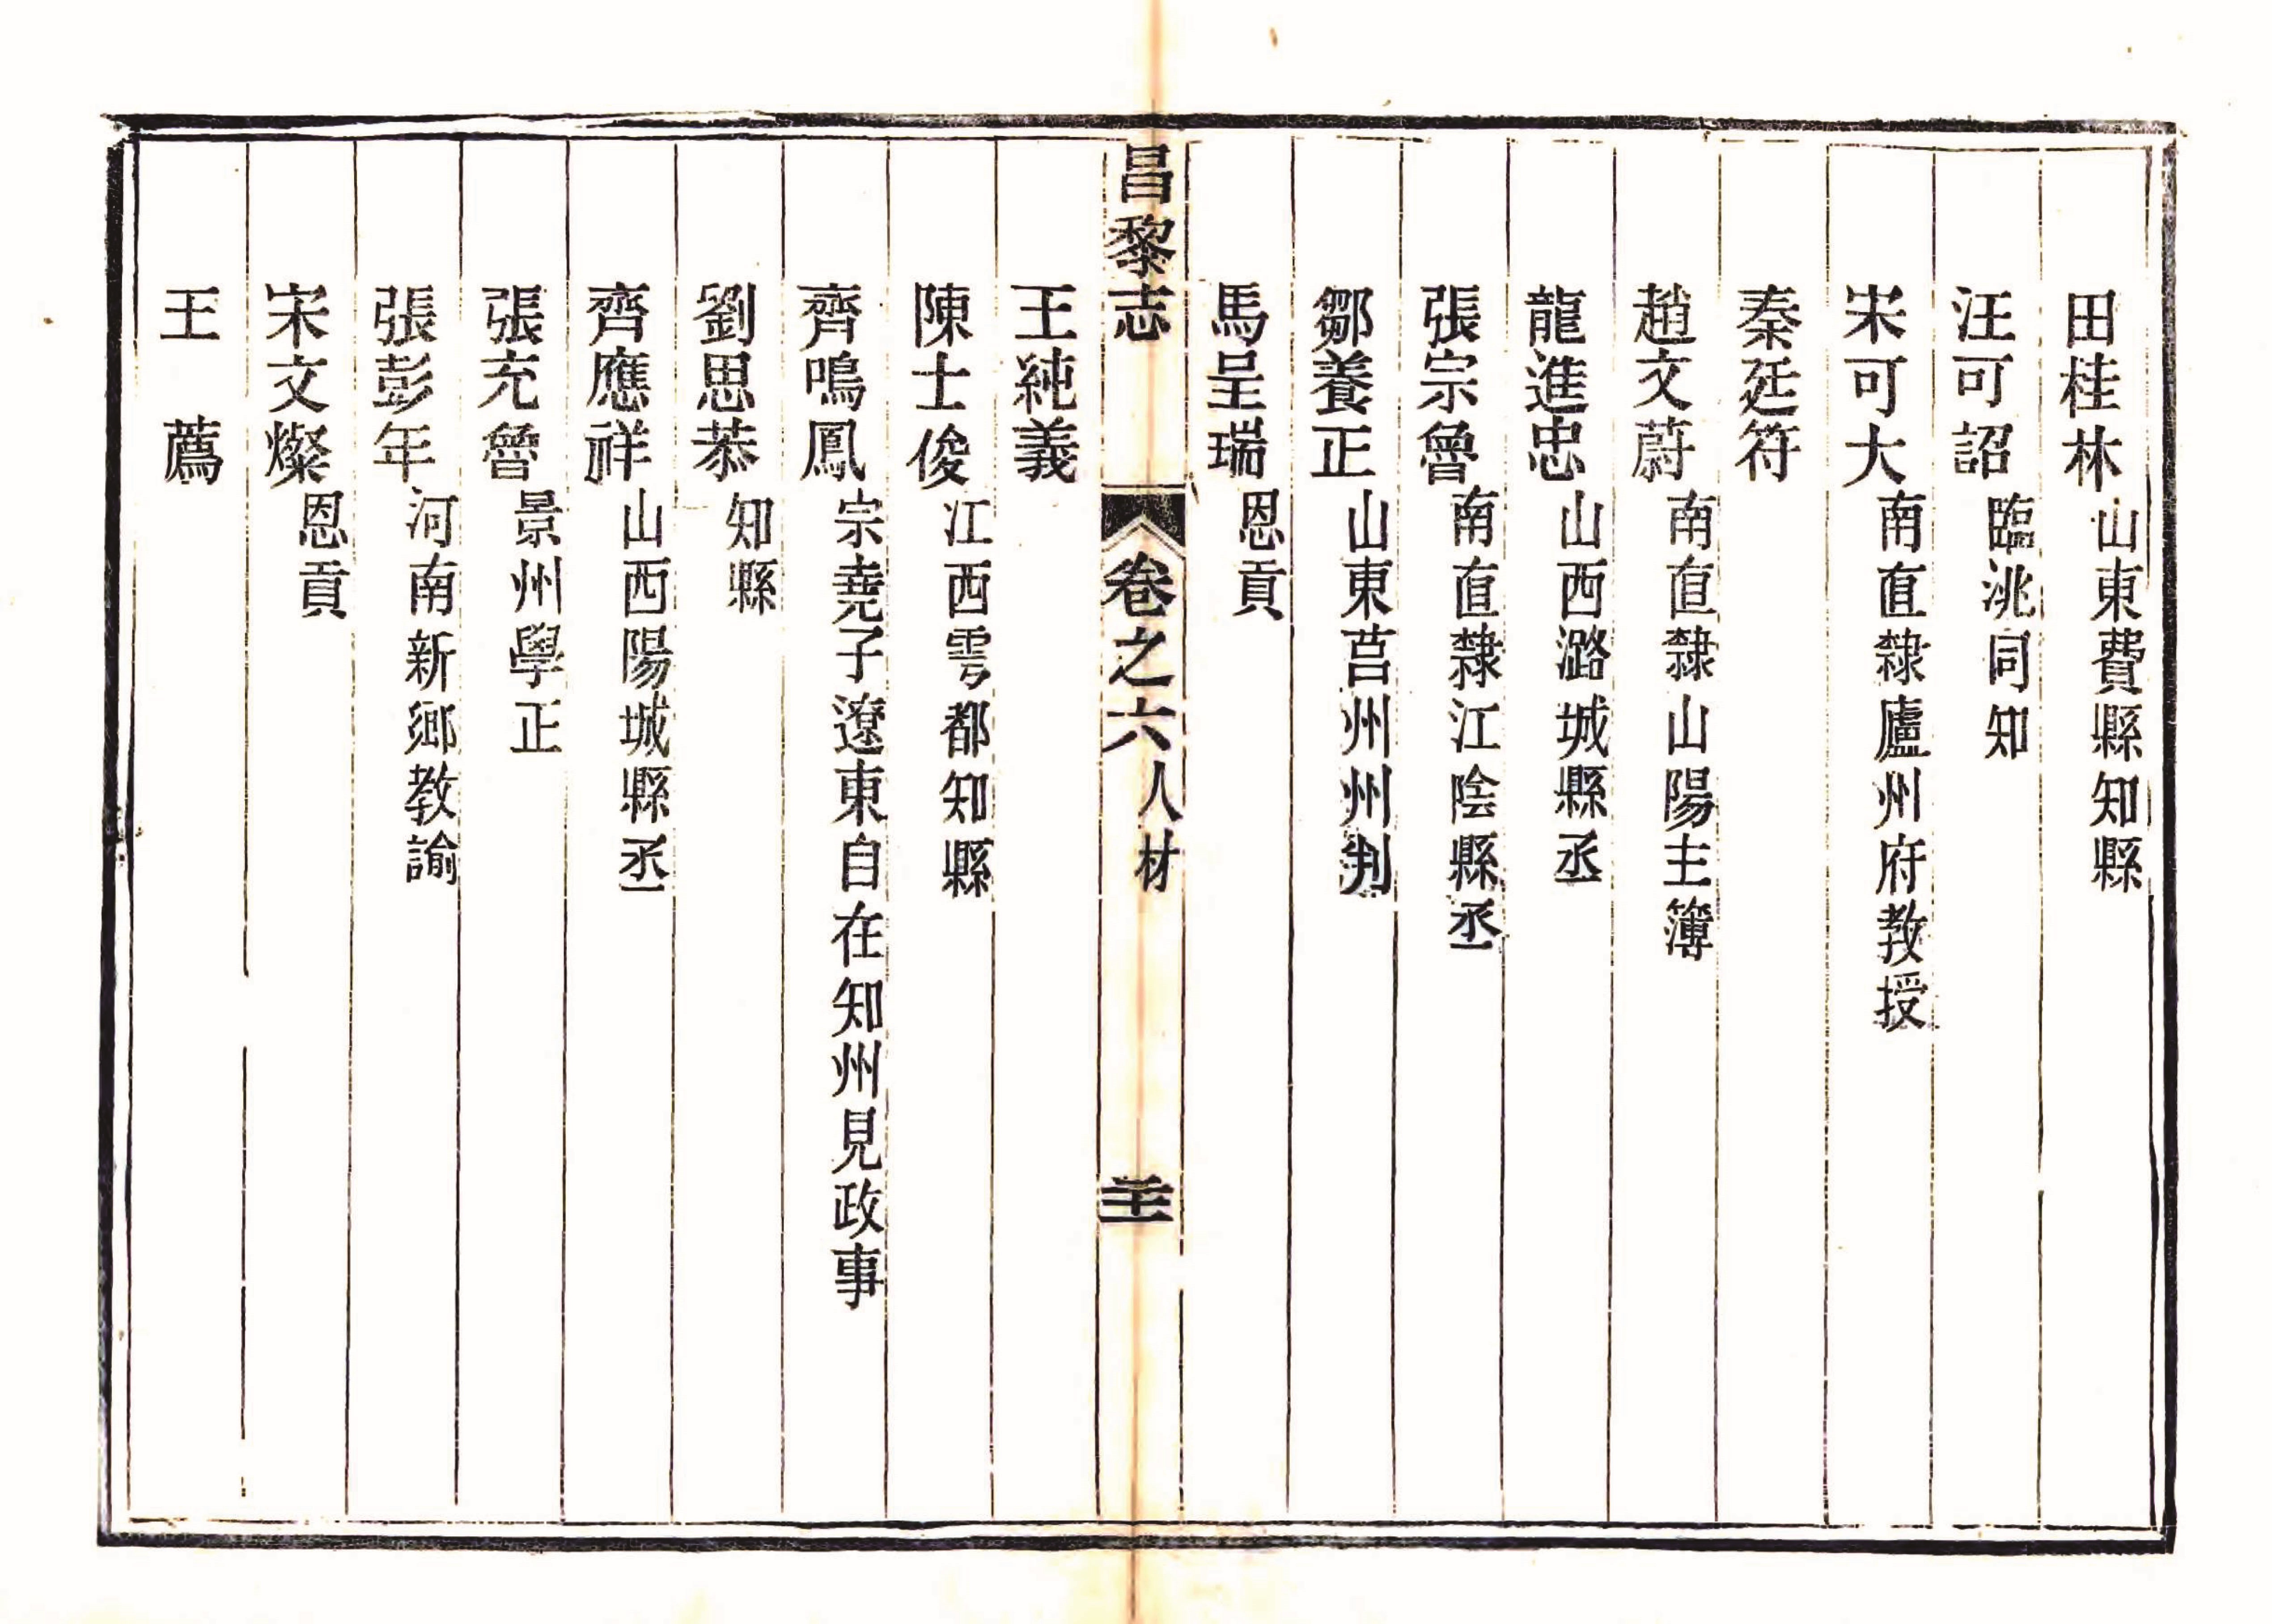 田桂林山東費縣知縣
汪可詔臨洮同知
宋可大南直隸廬州府教授
秦廷符
趙文蔚南直隸山陽主簿
龍進忠山西潞城縣丞
張宗魯南直隸江陰縣丞
鄒養正山東莒州州判
馬呈瑞恩貢
昌黎志 卷之六人材 二十一
王純義
陳士俊江西雩都知縣
齊鳴鳳宗堯子遼東自在知州見政事
劉思恭知縣
齊應祥山西陽城縣丞
張充魯景州學正
張彭年河南新鄉教諭
宋文燦恩貢
王薦